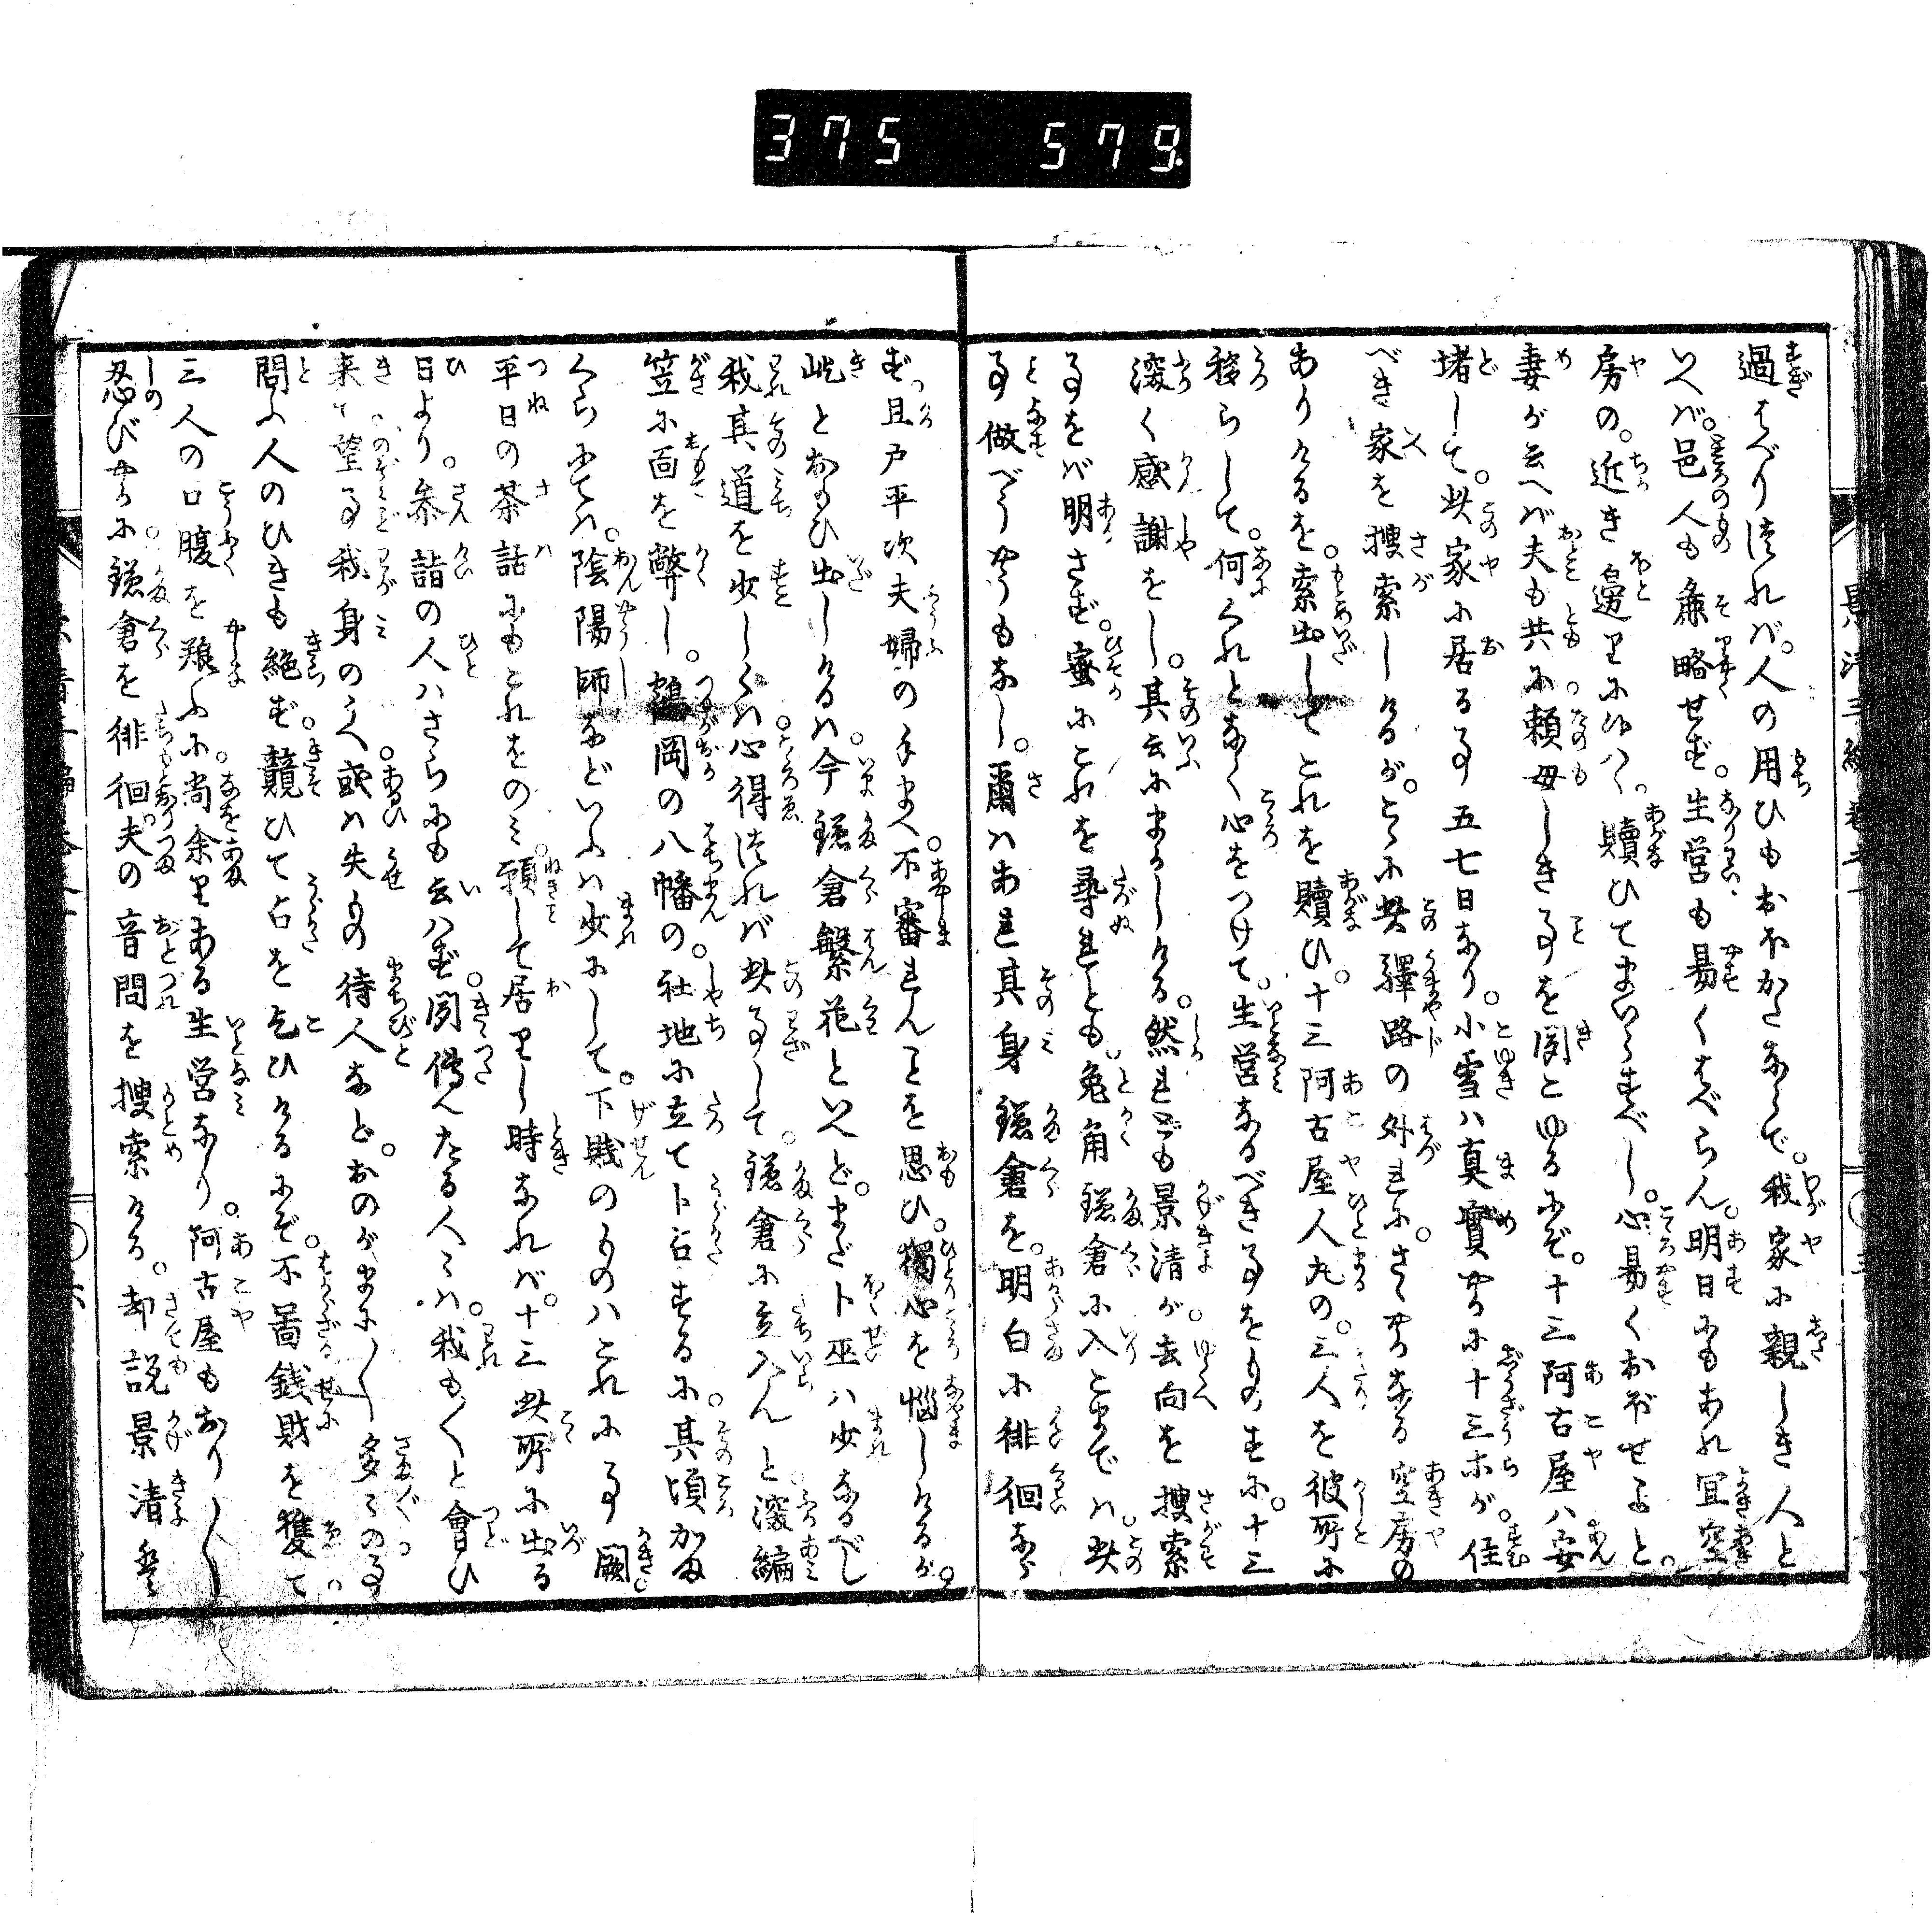 375 579.
過はべりつれバ。人の用ひもおほかたならで。我家に親しき人と
いへバ。邑人も麁略せず。生営も易くはべらん。明日にもあれ宜空
房の。近き邉りに候ハヾ。贖ひてまいらすべし。心易くおぼせよと。
妻が云へバ夫も共に頼母しき事を聞とゆるにぞ。十三阿古屋ハ安
堵して。此家に居る事五七日なり。小雪ハ真實やかに十三ホが。住
べき家を捜索しけるが。こゝに此驛路の外れに。さゝやかなる空房の
ありけるを。索出してこれを贖ひ。十三阿古屋人丸の。三人を彼所に
移らして。何くれとなく心をつけて。生営なるべき事をものすに。十三
深く感謝をし。其云にまかしける。然れども景清が。去向を捜索
事をバ明さず。蜜にこれを尋れども。兔角鎌倉に入こまでハ。此
事做べうやうもなし。爾ハあれ其身鎌倉を。明白に徘徊なら
ず。且戸平次夫婦の手まへ。不審れんことを思ひ。獨心を惱しけるが。
屹とおもひ出しけるハ。今鎌倉繁花といへど。まだト巫ハ少なるべし
我其道を少しくハ心得つれバ。此事して。鎌倉に立入んと深編
笠に面を弊し。鶴岡の八幡の。社地に立て卜占するに。其頃かま
くらにてハ。陰陽師などいふハ少にして。下賎のものハこれに事闕。
平日の茶話にもこれをのミ。願して居りし時なれバ。十三此所に出る
日より。參詣の人ハさらにも云ハず。聞傳へたる人々ハ。我も〳〵と會ひ
来て望事我身のうへ。或ハ失もの待人など。おのがまに〳〵多々の事
問ふ人のひきも絶ず。競ひて占を乞ひけるにぞ。不啚銭財を獲て。
三人の口腹を粮ふに。尚余りある生営なり。阿古屋もおり〳〵
忍びやかに。鎌倉を徘徊。夫の音問を捜索ける。却説景清